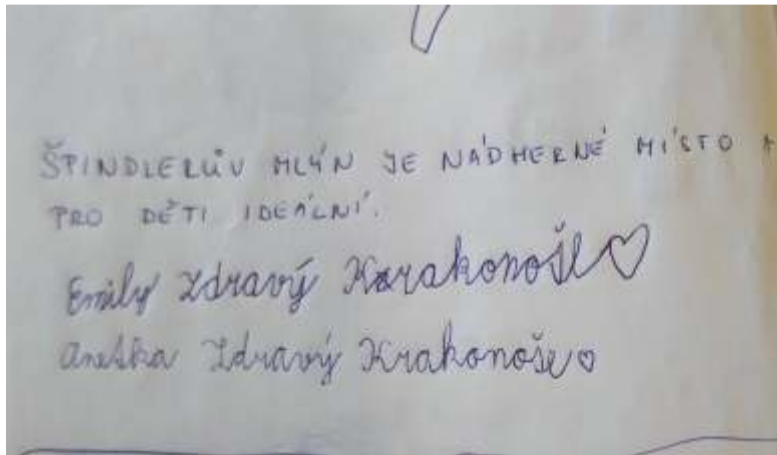 ŠPINDLERŮV MLÝN JE NÁDHERNÉ MÍSTO A
PRO DĚTI IDEÁLNÍ.
Emily zdravý Krakonoše
Anežka Zdravý Krakonoše